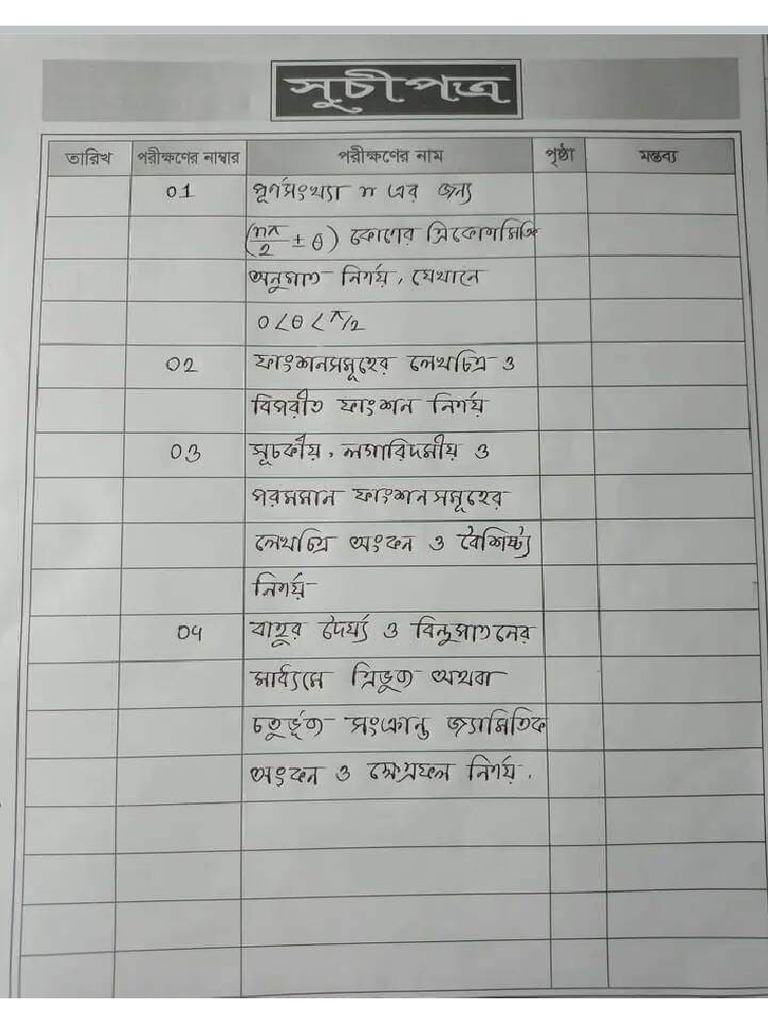 সূচীপত্র
তারিখ পরীক্ষণের নাম্বার পরীক্ষণের নাম পৃষ্ঠা মন্তব্য
01 পূর্ণসংখ্যা n এর জন্য
(nπ/2 ± θ) কোণের ত্রিকোণমিতি
অনুপাত নির্ণয়, যেখানে
0<θ<π/2
02 ফাংশনসমূহের লেখচিত্র ও
বিপরীত ফাংশন নির্ণয়
03 সূচকীয়, লগারিদমীয় ও
পরমমান ফাংশনসমূহের
লেখচিত্র অংকন ও বৈশিষ্ট্য
নির্ণয়
04 বাহুর দৈর্ঘ্য ও বিন্দুপাতনের
মাধ্যমে ত্রিভূজ অথবা
চতুর্ভূজ সংক্রান্ত জ্যামিতিক
অংকন ও ক্ষেত্রফল নির্ণয়.